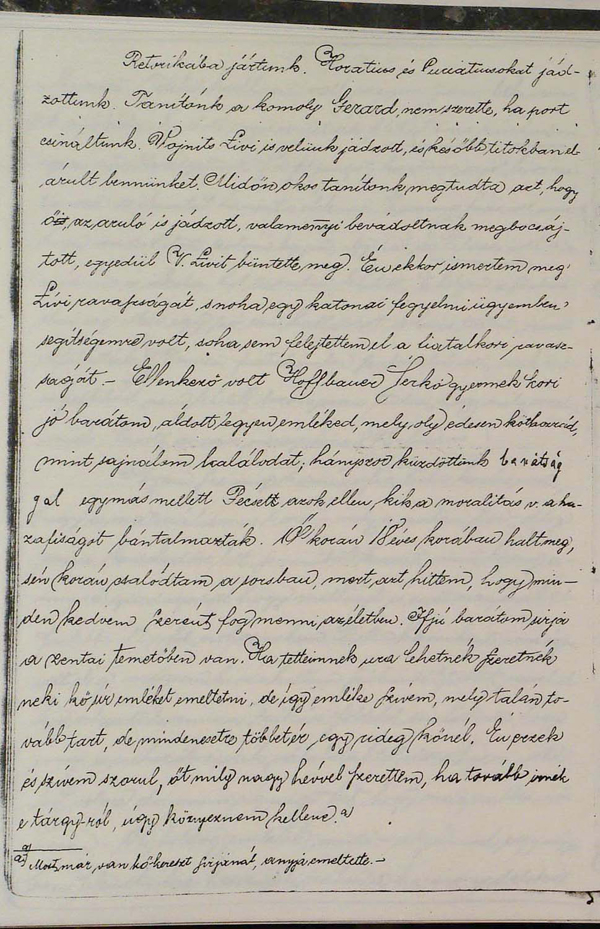 Retorikába jártunk. Horatius és Curiatiusokat jád-
zottunk. Tanítónk a komoly Gerard, nem szerette, ha port
csináltunk. Vojnits Livi is velünk jádzott, és később titokban el-
árult bennünket. Midőn okos tanítonk megtudta azt, hogy
ő is, az áruló is jádzott, valamennyi bevádoltnak megbocsáj-
tott, egyedül V. Livit büntette meg. Én ekkor ismertem meg
Livi ravaszságát, s noha egy katonai fegyelmi ügyemben
segítségemre volt, soha sem felejtettem el a fiatalkori ravasz-
ságát. – Ellenkező volt Hoffbauer Jerkó gyermekkori
jó barátom, áldott legyen emléked, mely oly édesen köt hozzád,
mint sajnálom halálodat; hányszor küzdöttünk barátság
gal egymás mellett Pécsett azok ellen, kik a moralitás v. a ha-
zafiságot bántalmazták. Ő korán 18 éves korában halt meg,
én korán csalódtam a sorsban, mert azt hittem, hogy min-
den kedvem szerént fog menni az életben. Ifjú barátom sirja
a zentai temetőben van. Ha tetteimnek ura lehetnék szeretnék
neki kő sír emléket emeltetni, de így emléke szívem, mely talán to-
vább tart, de mindenesetre többet ér egy rideg kőnél. Én érzek
és szívem szorul, őt mily nagy hévvel szerettem, ha tovább irnék
e tárgy-ról, úgy könyeznem kellene. a)
a) Most már van kőkereszt sirjánál, anyja emeltette. –